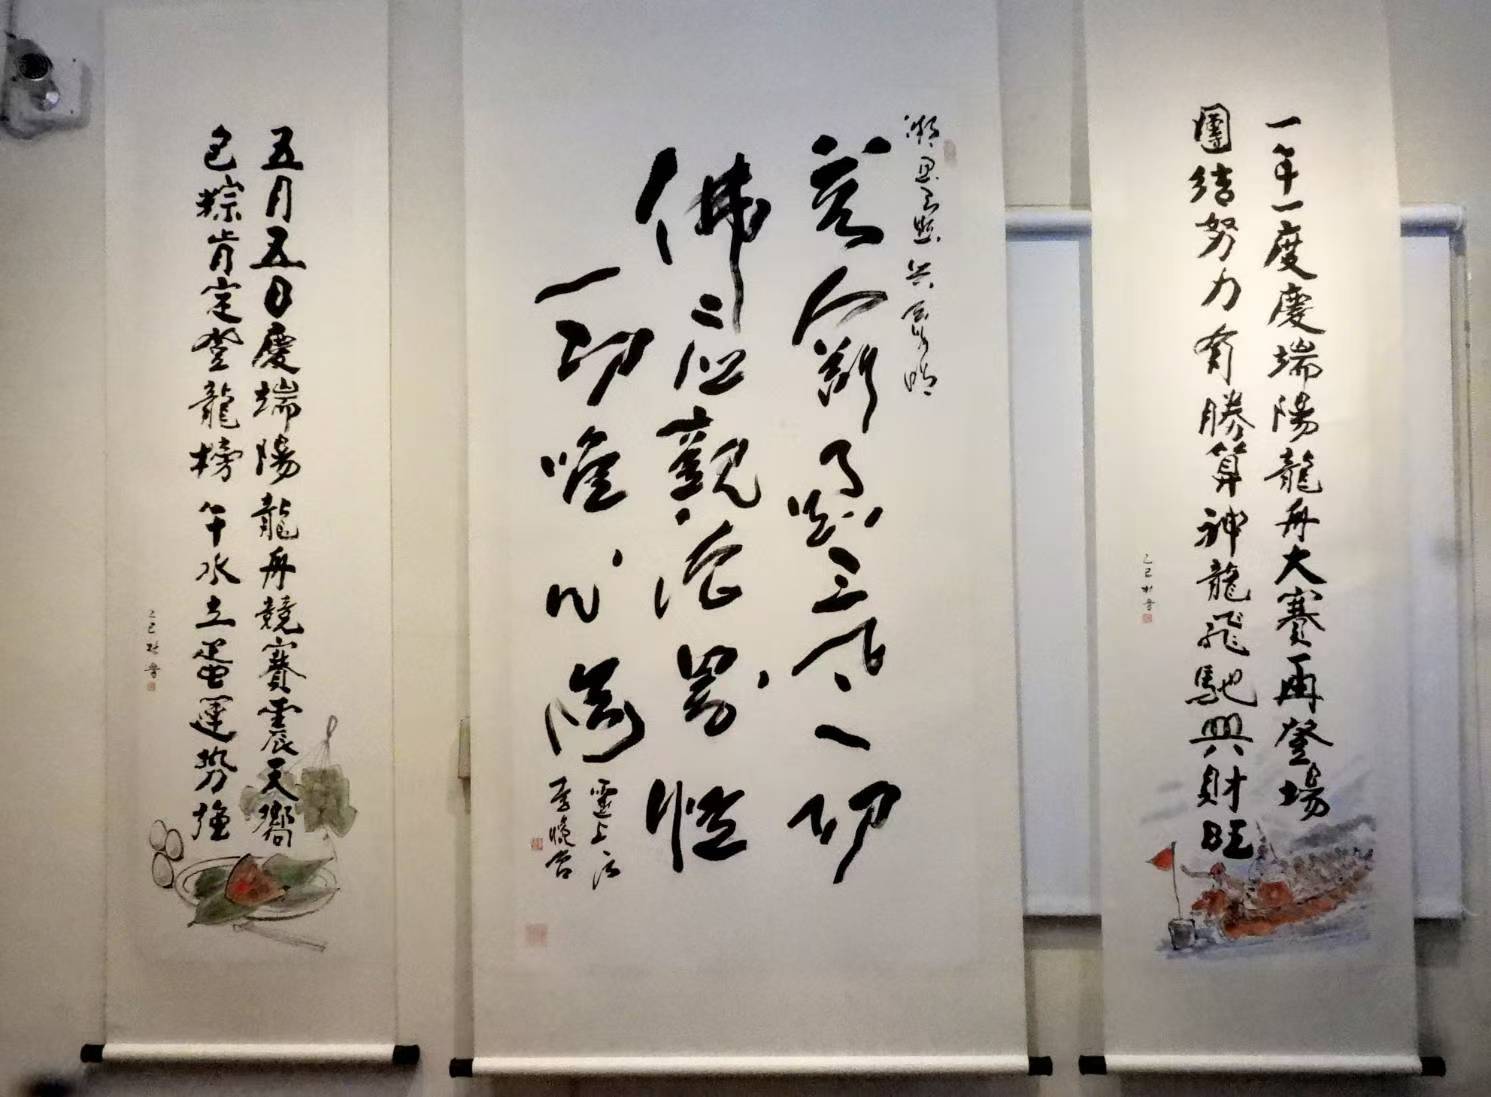 一年一度慶端陽龍舟大賽再登場
團結努力有勝算神龍飛馳興財旺
乙巳
若人欲了知三世一切
佛應觀法界性
一切唯心造
五月五日慶端陽龍舟競賽震天嚮
包粽肯定登龍榜午水立蛋運勢強
乙巳